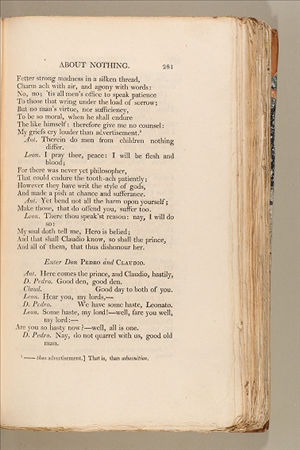 ABOUT NOTHING. 281
Fetter strong madness in a silken thread,
Charm ach with air, and agony with words:
No, no; 'tis all men's office to speak patience
To those that wring under the load of sorrow;
But no man's virtue, nor sufficiency,
To be so moral, when he shall endure
The like himself: therefore give me no counsel:
My griefs cry louder than advertisement.²
Ant. Therein do men from children nothing
differ.
Leon. I pray thee, peace: I will be flesh and
blood;
For there was never yet philosopher,
That could endure the tooth-ach patiently;
However they have writ the style of gods,
And made a pish at chance and sufferance.
Ant. Yet bend not all the harm upon yourself;
Make those, that do offend you, suffer too.
Leon. There thou speak'st reason: nay, I will do
so:
My soul doth tell me, Hero is belied;
And that shall Claudio know, so shall the prince,
And all of them, that thus dishonour her.
Enter Don PEDRO and CLAUDIO.
Ant. Here comes the prince, and Claudio, hastily.
D. Pedro. Good den, good den.
Claud. Good day to both of you.
Leon. Hear you, my lords,—
D. Pedro. We have some haste, Leonato.
Leon. Some haste, my lord!—well, fare you well,
my lord:—
Are you so hasty now?—well, all is one.
D. Pedro. Nay, do not quarrel with us, good old
man.
² —— than advertisement.] That is, than admonition.